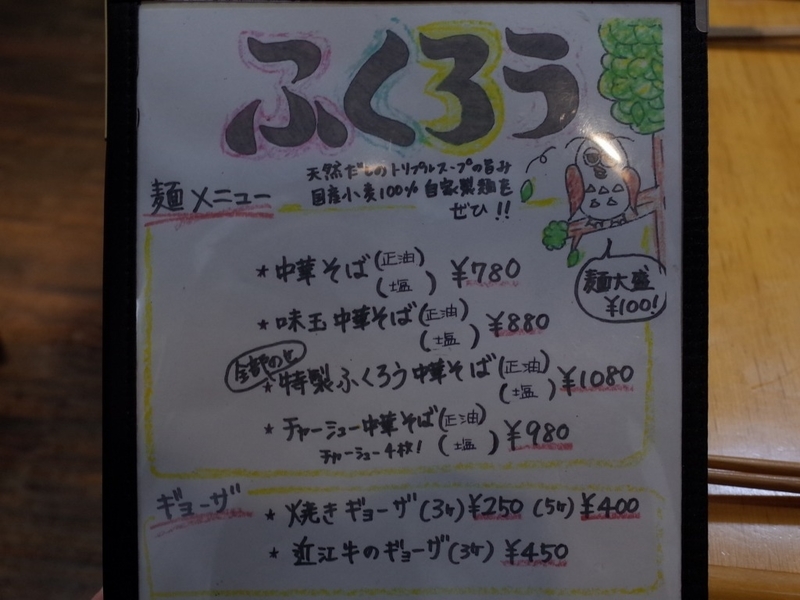 ふくろう
天然だしのトリプルスープの旨み
国産小麦100% 自家製麺を
ぜひ!!
麺メニュー
* 中華そば(正油)
(塩) ¥780
* 味玉中華そば(正油)
(塩) ¥880
全部のせ
* 特製ふくろう中華そば(正油)
(塩) ¥1080
* チャーシュー中華そば(正油)
チャーシュー4枚! (塩) ¥980
麺大盛
¥100!
ギョーザ
* 焼きギョーザ(3ケ)¥250 (5ケ)¥400
* 近江牛のギョーザ(3ケ) ¥450